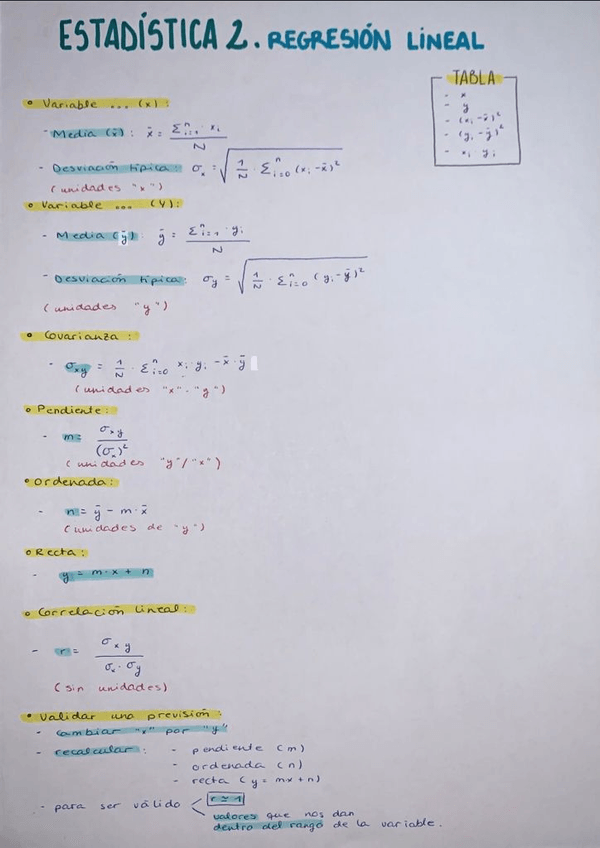 ESTADÍSTICA 2. REGRESIÓN LINEAL
TABLA
- x
- y
- (xᵢ - x̄)²
- (yᵢ - ȳ)²
- xᵢ · yᵢ
• Variable ... (x):
- Media (x̄): x̄ = Σⁿᵢ₌₁ · xᵢ / N
- Desviación típica: σₓ = √(1/N · Σⁿᵢ₌₀ (xᵢ - x̄)²)
(unidades "x")
• Variable ... (Y):
- Media (ȳ) ȳ = Σⁿᵢ₌₁ · yᵢ / N
- Desviación típica: σy = √(1/N · Σⁿᵢ₌₀ (yᵢ - ȳ)²)
(unidades "y")
• Covarianza:
- σxy = 1/N · Σⁿᵢ₌₀ xᵢ · yᵢ - x̄ · ȳ
(unidades "x" · "y")
• Pendiente:
- m = σxy / (σₓ)²
(unidades "y"/"x")
• Ordenada:
- n = ȳ - m · x̄
(unidades de "y")
• Recta:
- y = m · x + n
• Correlación lineal:
- r = σxy / σₓ · σy
(sin unidades)
• Validar una previsión:
- Cambiar "x" por "y"
- recalcular: - pendiente (m)
- ordenada (n)
- recta (y = mx + n)
- para ser válido < r ≃ 1
valores que nos dan
dentro del rango de la variable.